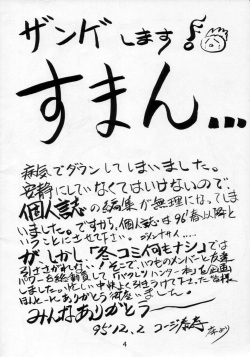 ザンゲします
すまん…
病気でダウンしてしまいました。
安静にしていなくてはいけないので、
個人誌の編集が無理になってしま
いました。ですから、個人誌は96'春以降と
いうことにさせて下さい。ゴメンナサイ…
がしかし「冬コミ何もナシ」では
引きさがれない!と思って、いつものメンバーと友達
パワーを総動員してバクレツハンター本を企画
しました。忙しい中快よく引き受けて下さった皆様
ほんとーにありがとう御座いました。
みんなありがとう
95.12.2
4